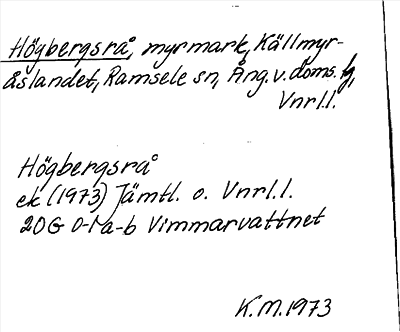 Högbergsrå, myrmark, Källmyr-
åslandet, Ramsele sn, Ång. v. doms. lg,
Vnrl.l.
Högbergsrå
ek (1973) Jämtl. o. Vnrl.l.
20G 0-1 a-b Vimmarvattnet
K.M. 1973